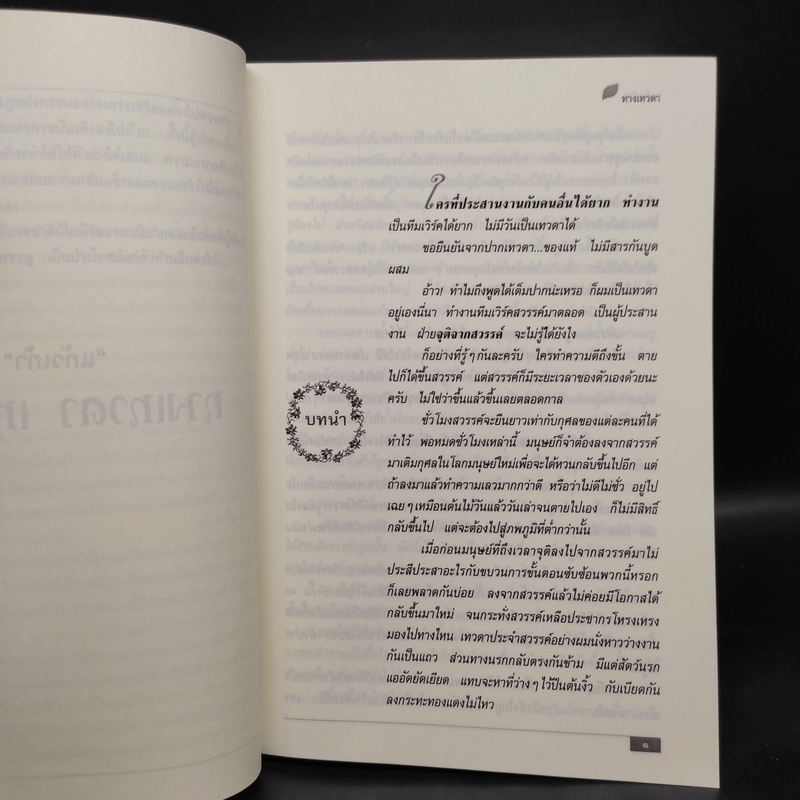 ทางเทวดา
ใครที่ประสานงานกับคนอื่นได้ยาก ทำงาน
เป็นทีมเวิร์คได้ยาก ไม่มีวันเป็นเทวดาได้
ขอยืนยันจากปากเทวดา...ของแท้ ไม่มีสารกันบูด
ผสม
อ้าว! ทำไมถึงพูดได้เต็มปากน่ะเหรอ ก็ผมเป็นเทวดา
อยู่เองนี่นา ทำงานทีมเวิร์คสวรรค์มาตลอด เป็นผู้ประสาน
งาน ฝ่ายจุติจากสวรรค์ จะไม่รู้ได้ยังไง
ก็อย่างที่รู้ๆกันละครับ ใครทำความดีถึงขั้น ตาย
ไปก็ได้ขึ้นสวรรค์ แต่สวรรค์ก็มีระยะเวลาของตัวเองด้วยนะ
ครับ ไม่ใช่ว่าขึ้นแล้วขึ้นเลยตลอดกาล
ชั่วโมงสวรรค์จะยืนยาวเท่ากับกุศลของแต่ละคนที่ได้
ทำไว้ พอหมดชั่วโมงเหล่านี้ มนุษย์ก็จำต้องลงจากสวรรค์
มาเติมกุศลในโลกมนุษย์ใหม่เพื่อจะได้หวนกลับขึ้นไปอีก แต่
ถ้าลงมาแล้วทำความเลวมากกว่าดี หรือว่าไม่ดีไม่ชั่ว อยู่ไป
เฉยๆเหมือนต้นไม้วันแล้ววันเล่าจนตายไปเอง ก็ไม่มีสิทธิ์
กลับขึ้นไป แต่จะต้องไปสู่ภพภูมิที่ต่ำกว่านั้น
เมื่อก่อนมนุษย์ที่ถึงเวลาจุติลงไปจากสวรรค์มาไม่
ประสีประสาอะไรกับขบวนการขั้นตอนซับซ้อนพวกนี้หรอก
ก็เลยพลาดกันบ่อย ลงจากสวรรค์แล้วไม่ค่อยมีโอกาสได้
กลับขึ้นมาใหม่ จนกระทั่งสวรรค์เหลือประชากรโหรงเหรง
มองไปทางไหน เทวดาประจำสวรรค์อย่างผมนั่งหาวว่างงาน
กันเป็นแถว ส่วนทางนรกกลับตรงกันข้าม มีแต่สัตว์นรก
แออัดยัดเยียด แทบจะหาที่ว่างๆไว้ปีนต้นงิ้ว กับเบียดกัน
ลงกระทะทองแดงไม่ไหว
บทนำ
๑